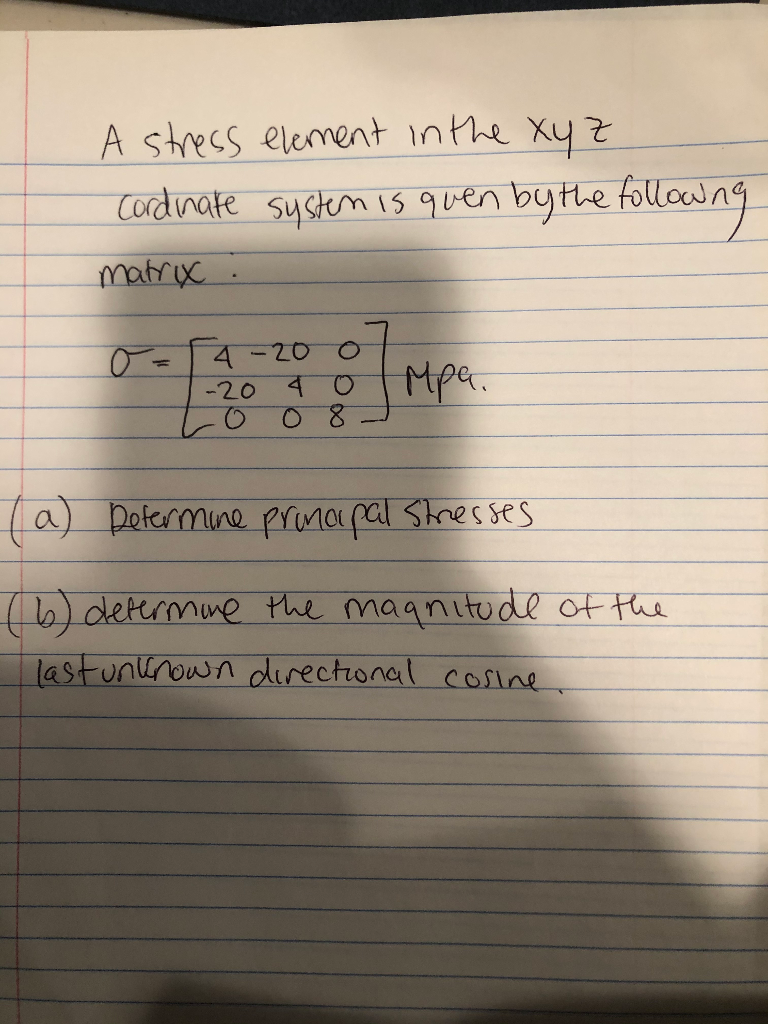 A stress element in the xyz
cordinate system is given by the following
matrix :
σ = [ 4 -20 0
-20 4 0 Mpa.
0 0 8 ]
(a) Determine principal stresses
(b) determine the magnitude of the
last unknown directional cosine.